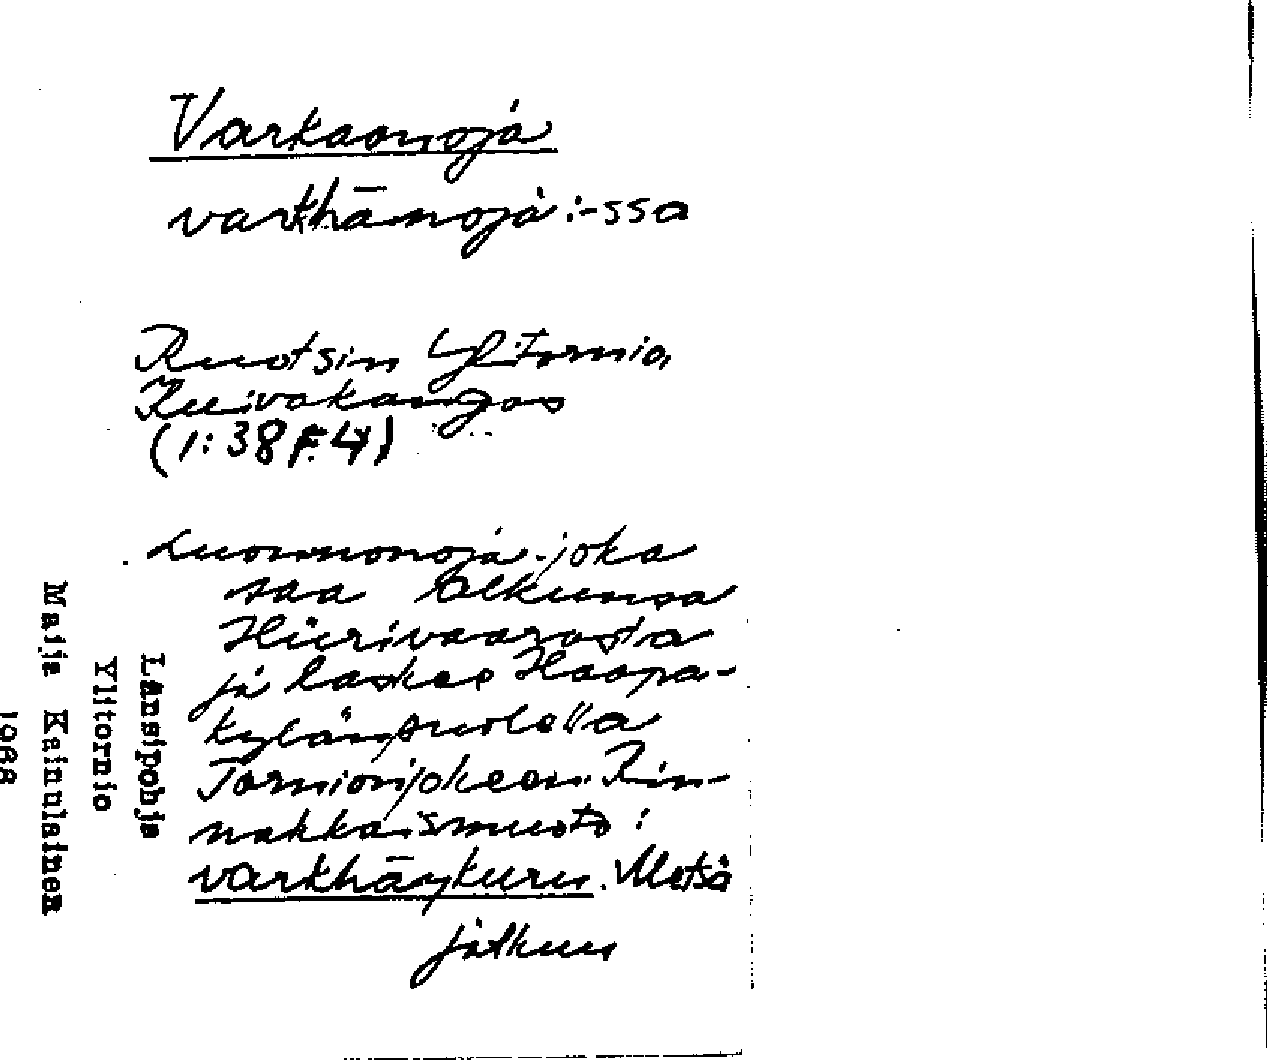 Varkaanoja
varkhānoja :-ssa
Ruotsin Ylitornio,
Kuivakangas
(1:38 F4)
Luonnonoja joka
saa alkunsa
Hiirivaarasta
ja laskee Haapa-
kylänpuolella
Tornionjokeen. Rin-
nakkaismuoto:
varkhāŋkuru. Metsä
jatkuu
Länsipohja
Ylitornio
Maija Kainulainen
1988